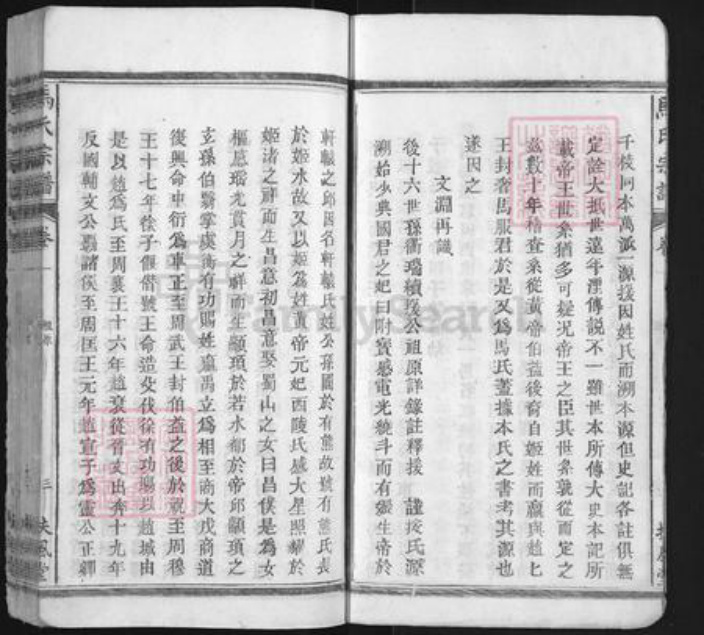 千枝同本萬派一源援因姓氏而溯本源但史記各註俱無
定詮大抵世遠年湮傳說不一雖世本所傳大史本記所
載帝王世系猶多可疑况帝王之臣其世系孰從而定之
茲數十年稽查系從黃帝伯益後裔自姬姓而嬴與趙七
王封奢馬服君於是又爲馬氏蓋據本氏之書考其源也
遂因之
文淵再識
後十六世孫衢瑞續援公祖原詳錄註釋援 謹按氏源
溯始少典國君之妃曰附寶感電光繞斗而有娠生帝於
軒轅之邱因名軒轅氏姓公孫國於有熊故號有熊氏長
於姬水故又以姬爲姓黃帝元妃西陵氏感大星照耀於
姬渚之祥而生昌意初昌意娶蜀山之女曰昌僕是爲女
樞感瑶光貫月之祥而生顓頊於若水都於帝邱顓頊之
玄孫伯翳掌虞衡有功賜姓嬴禹立爲相至商大戊商道
復興命中衍爲車正至周武王封伯益之後於 至周穆
王十七年徐子偃僭號王命造父伐徐有功賜以趙城由
是以趙爲氏至周襄王十六年趙衰從晉文出奔十九年
反國輔文公霸諸侯至周匡王元年趙宣子爲靈公正卿
馬氏宗譜 卷
三 扶風堂
馬氏宗譜